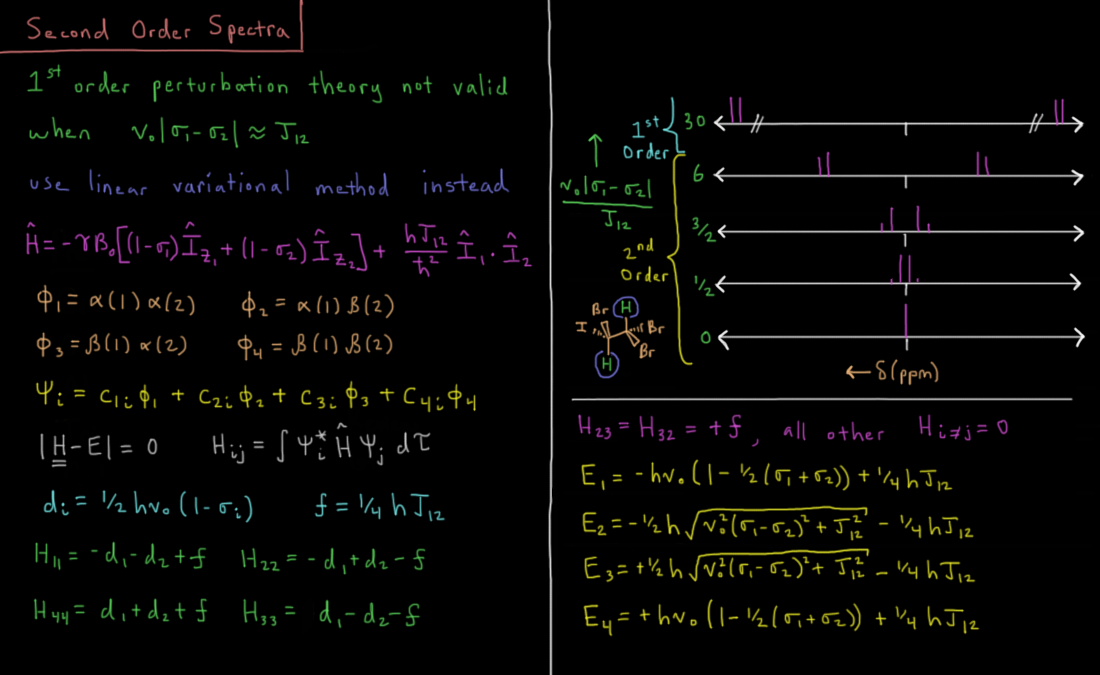 Second Order Spectra
1st order perturbation theory not valid
when ν₀|σ₁-σ₂| ≈ J₁₂
use linear variational method instead
Ĥ = -γB₀[(1-σ₁)Î_z₁ + (1-σ₂)Î_z₂] + hJ₁₂/ħ² Î₁·Î₂
ϕ₁ = α(1) α(2) ϕ₂ = α(1) β(2)
ϕ₃ = β(1) α(2) ϕ₄ = β(1) β(2)
Ψᵢ = c₁ᵢϕ₁ + c₂ᵢϕ₂ + c₃ᵢϕ₃ + c₄ᵢϕ₄
|H-E| = 0 Hᵢⱼ = ∫ Ψᵢ* Ĥ Ψⱼ dτ
dᵢ = ½hν₀(1-σᵢ) f = ¼ h J₁₂
H₁₁ = -d₁-d₂+f H₂₂ = -d₁+d₂-f
H₄₄ = d₁+d₂+f H₃₃ = d₁-d₂-f
1st Order
30
6
3/2
1/2
0
ν₀|σ₁-σ₂|/J₁₂
2nd Order
Br H
I Br
H Br
← δ(ppm)
H₂₃ = H₃₂ = +f, all other H_i≠j = 0
E₁ = -hν₀(1-½(σ₁+σ₂)) + ¼hJ₁₂
E₂ = -½h√(ν₀²(σ₁-σ₂)² + J₁₂²) - ¼hJ₁₂
E₃ = +½h√(ν₀²(σ₁-σ₂)² + J₁₂²) - ¼hJ₁₂
E₄ = +hν₀(1-½(σ₁+σ₂)) + ¼hJ₁₂